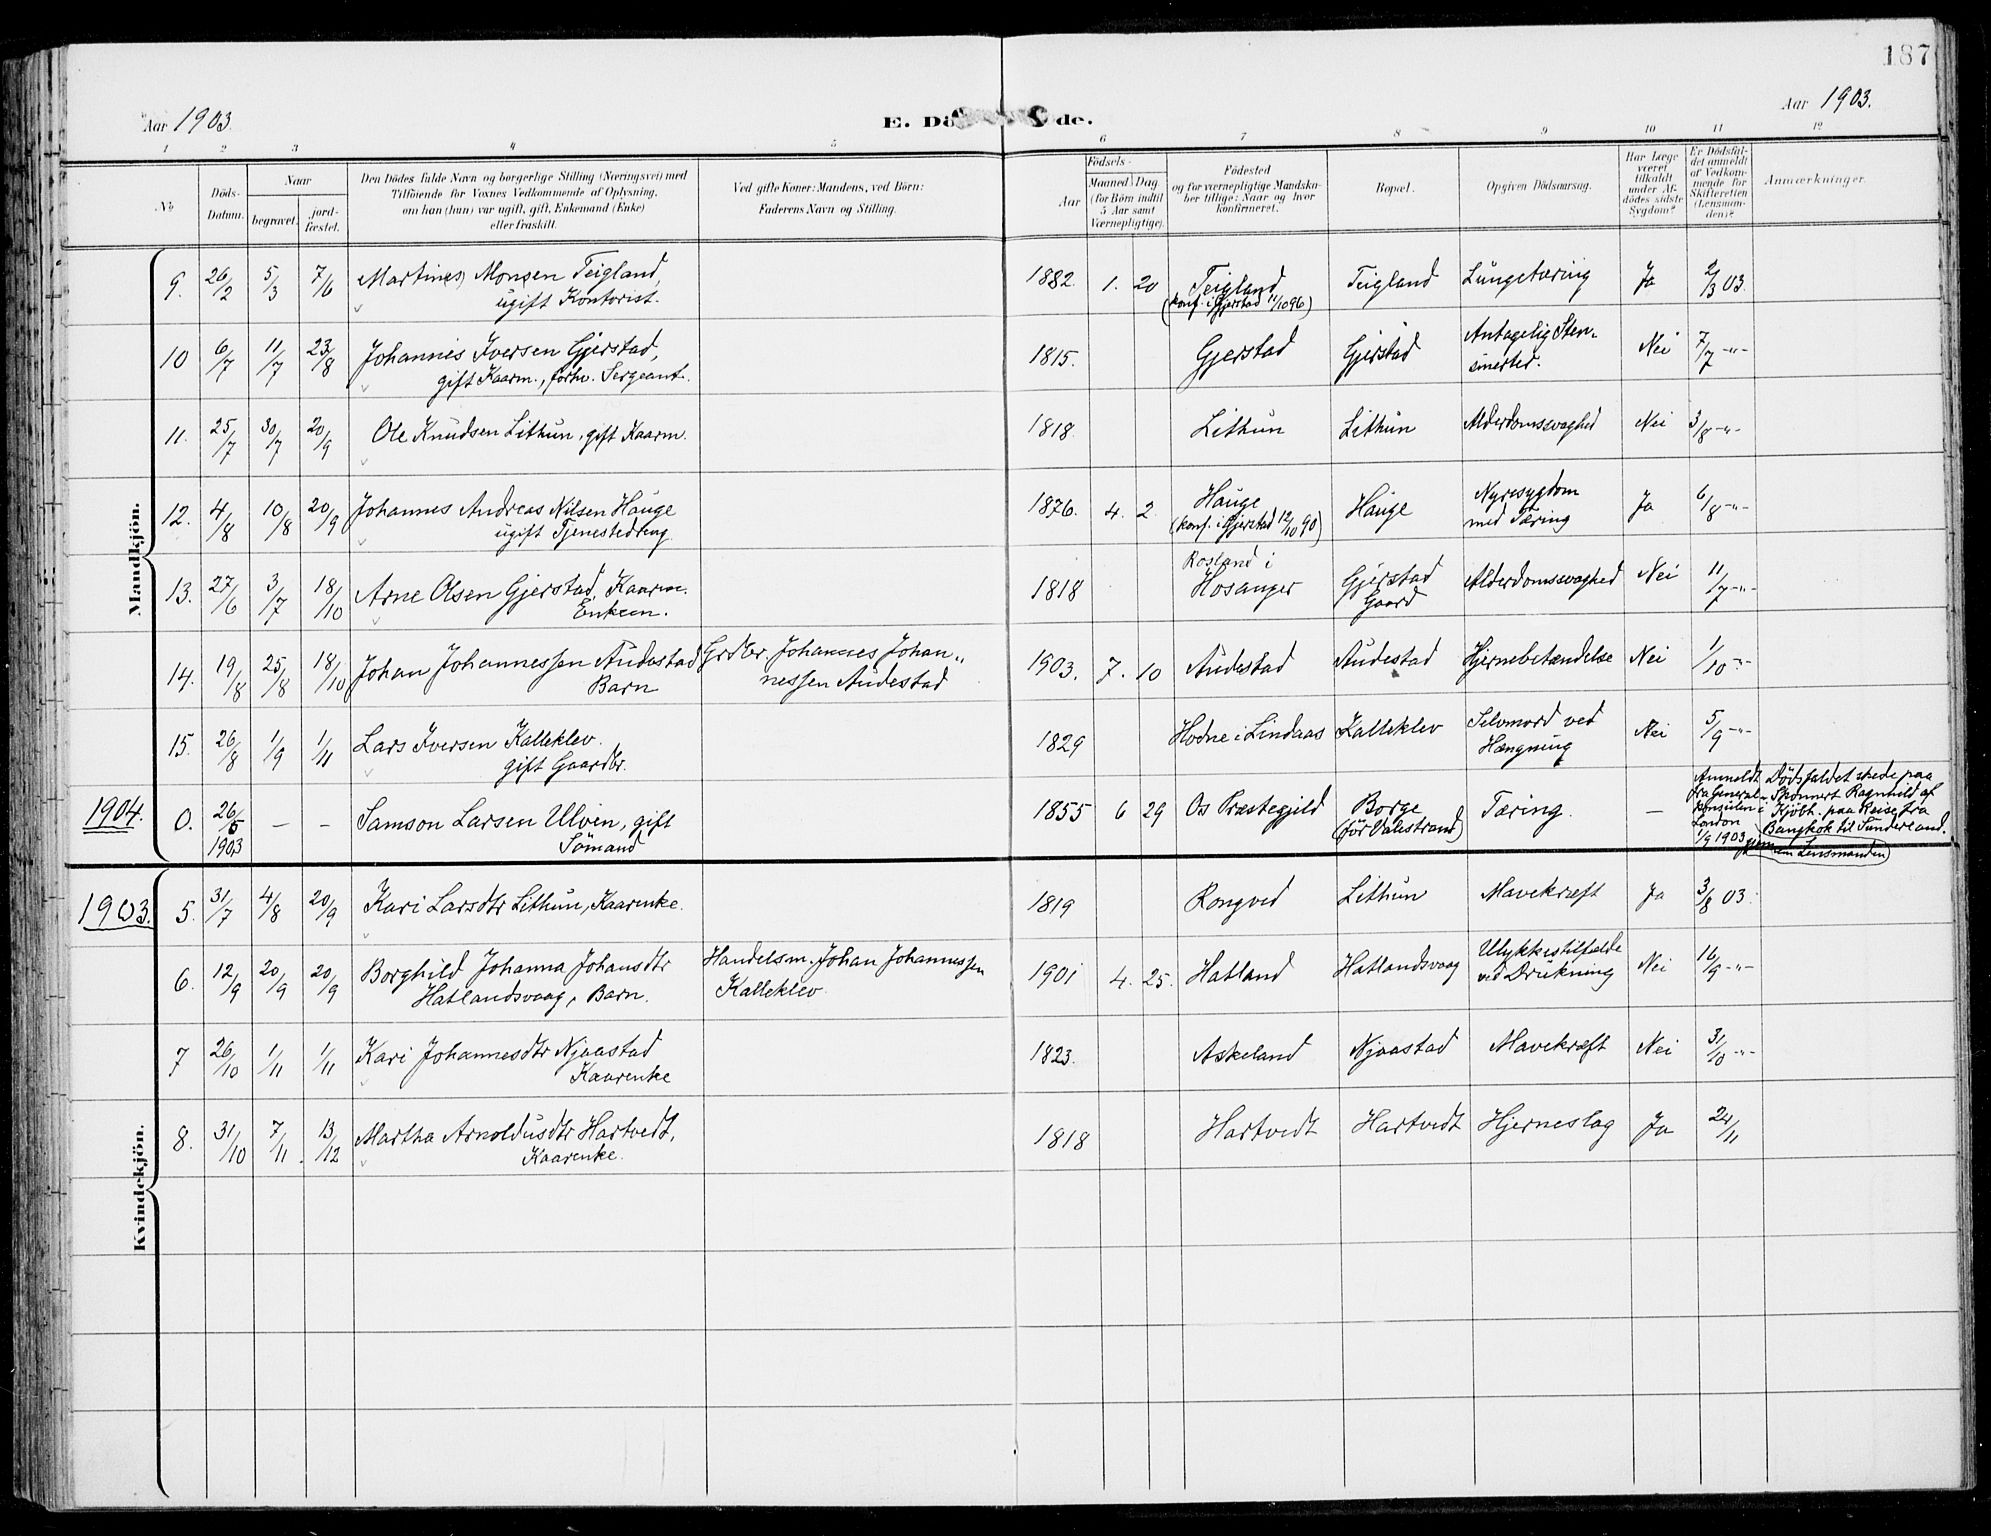 187
Aar 1903.
E. Dö de.
Aar 1903.
1 2 3 4 5 6 7 8 9 10 11 12
No
Döds-
Datum.
Naar
begravet.
jord-
fæstet.
Den Dödes fulde Navn og borgerlige Stilling (Næringsvei) med
Tilföiende for Voxnes Vedkommende af Oplysning,
om han (hun) var ugift, gift, Enkemand (Enke)
eller fraskilt.
Ved gifte Koner: Mandens, ved Börn:
Faderens Navn og Stilling.
Födsels-
Aar
Maaned Dag
(for Börn indtil
5 Aar samt
Værnepligtige).
Födested
og for værnepligtige Mandska-
ber tillige: Naar og hvor
konfirmeret.
Bopæl.
Opgiven Dödsaarsag.
Har Læge
været
tilkaldt
under Af-
dödes sidste
Sygdom?
Er Dödsfal-
det anmeldt
af Vedkom-
mende for
Skifteretten
(Lensman-
den)?
Anmærkninger.
Mandkjön.
9. 26/2 5/3 7/6 Martines Monsen Teigland, 1882. 1. 20 Teigland Teigland Lungetæring Ja 2/3 03.
ugift Kontorist. (konf. i Gjerstad 11/10 96)
10 6/7 11/7 23/8 Johannes Iversen Gjerstad, 1815. Gjerstad Gjerstad Antagelig Sten- Nei 7/7 -"-
gift Kaarm., forhv. Sergeant. smerter.
11. 25/7 30/7 20/9 Ole Knudsen Lithun, gift Kaarm. 1818. Lithun Lithun Alderdomssvaghed Nei 3/8 -"-
12. 4/8 10/8 20/9 Johannes Andreas Nilsen Hauge 1876. 4. 2. Hauge Hauge Nyresygdom Ja 6/8 -"-
ugift Tjenestedreng (konf. i Gjerstad 12/10 90) med Tæring
13. 27/6 3/7 18/10 Arne Olsen Gjerstad, Kaarm. 1818 Rosland i Gjerstad Alderdomssvaghed Nei 11/7 -"-
Enkem. Hosanger Gaard
14. 19/8 25/8 18/10 Johan Johannessen Audestad Grdbr. Johannes Johan- 1903. 7. 10 Audestad Audestad Hjernebetændelse Nei 1/10 -"-
Barn nessen Audestad
15. 26/8 1/9 1/11 Lars Iversen Kalleklev. 1829 Hodne i Lindaas Kalleklev Selvmord ved Nei 5/9 -"-
gift Gaardbr. Hængning
1904. 0. 26/5 1903 — — Samson Larsen Ulven, gift 1855 6 29 Os Præstegjeld Borge Tæring. —
Sömand (för Valestrand)
Anmeldt
fra General-
konsulen i
London
1/9 1903 gjennem Lensmanden)
Dödsfaldet skede paa
Skonnert Ragnhild af
Kjöbh. paa Reise fra
Bangkok til Sunderland.
Kvindekjön.
1903. 5. 31/7 4/8 20/9 Kari Larsdtr Lithun, Kaarenke. 1819 Rongved Lithun Mavekræft Ja 3/8 03.
6. 12/9 20/9 20/9 Borghild Johanna Johansdtr Handelsm. Johan Johannessen 1901 4. 25. Hatland Hatlandsvaag Ulykkestilfælde Nei 16/9 -"-
Hatlandsvaag, Barn. Kalleklev ved Drukning
7 26/10 1/11 1/11 Kari Johannesdtr Njaastad 1823. Askeland Njaastad Mavekræft Nei 31/10 -"-
Kaarenke
8. 31/10 7/11 13/12 Martha Arnoldusdtr Hartvedt, 1818 Hartvedt Hartvedt Hjerneslag Ja 24/11
Kaarenke.